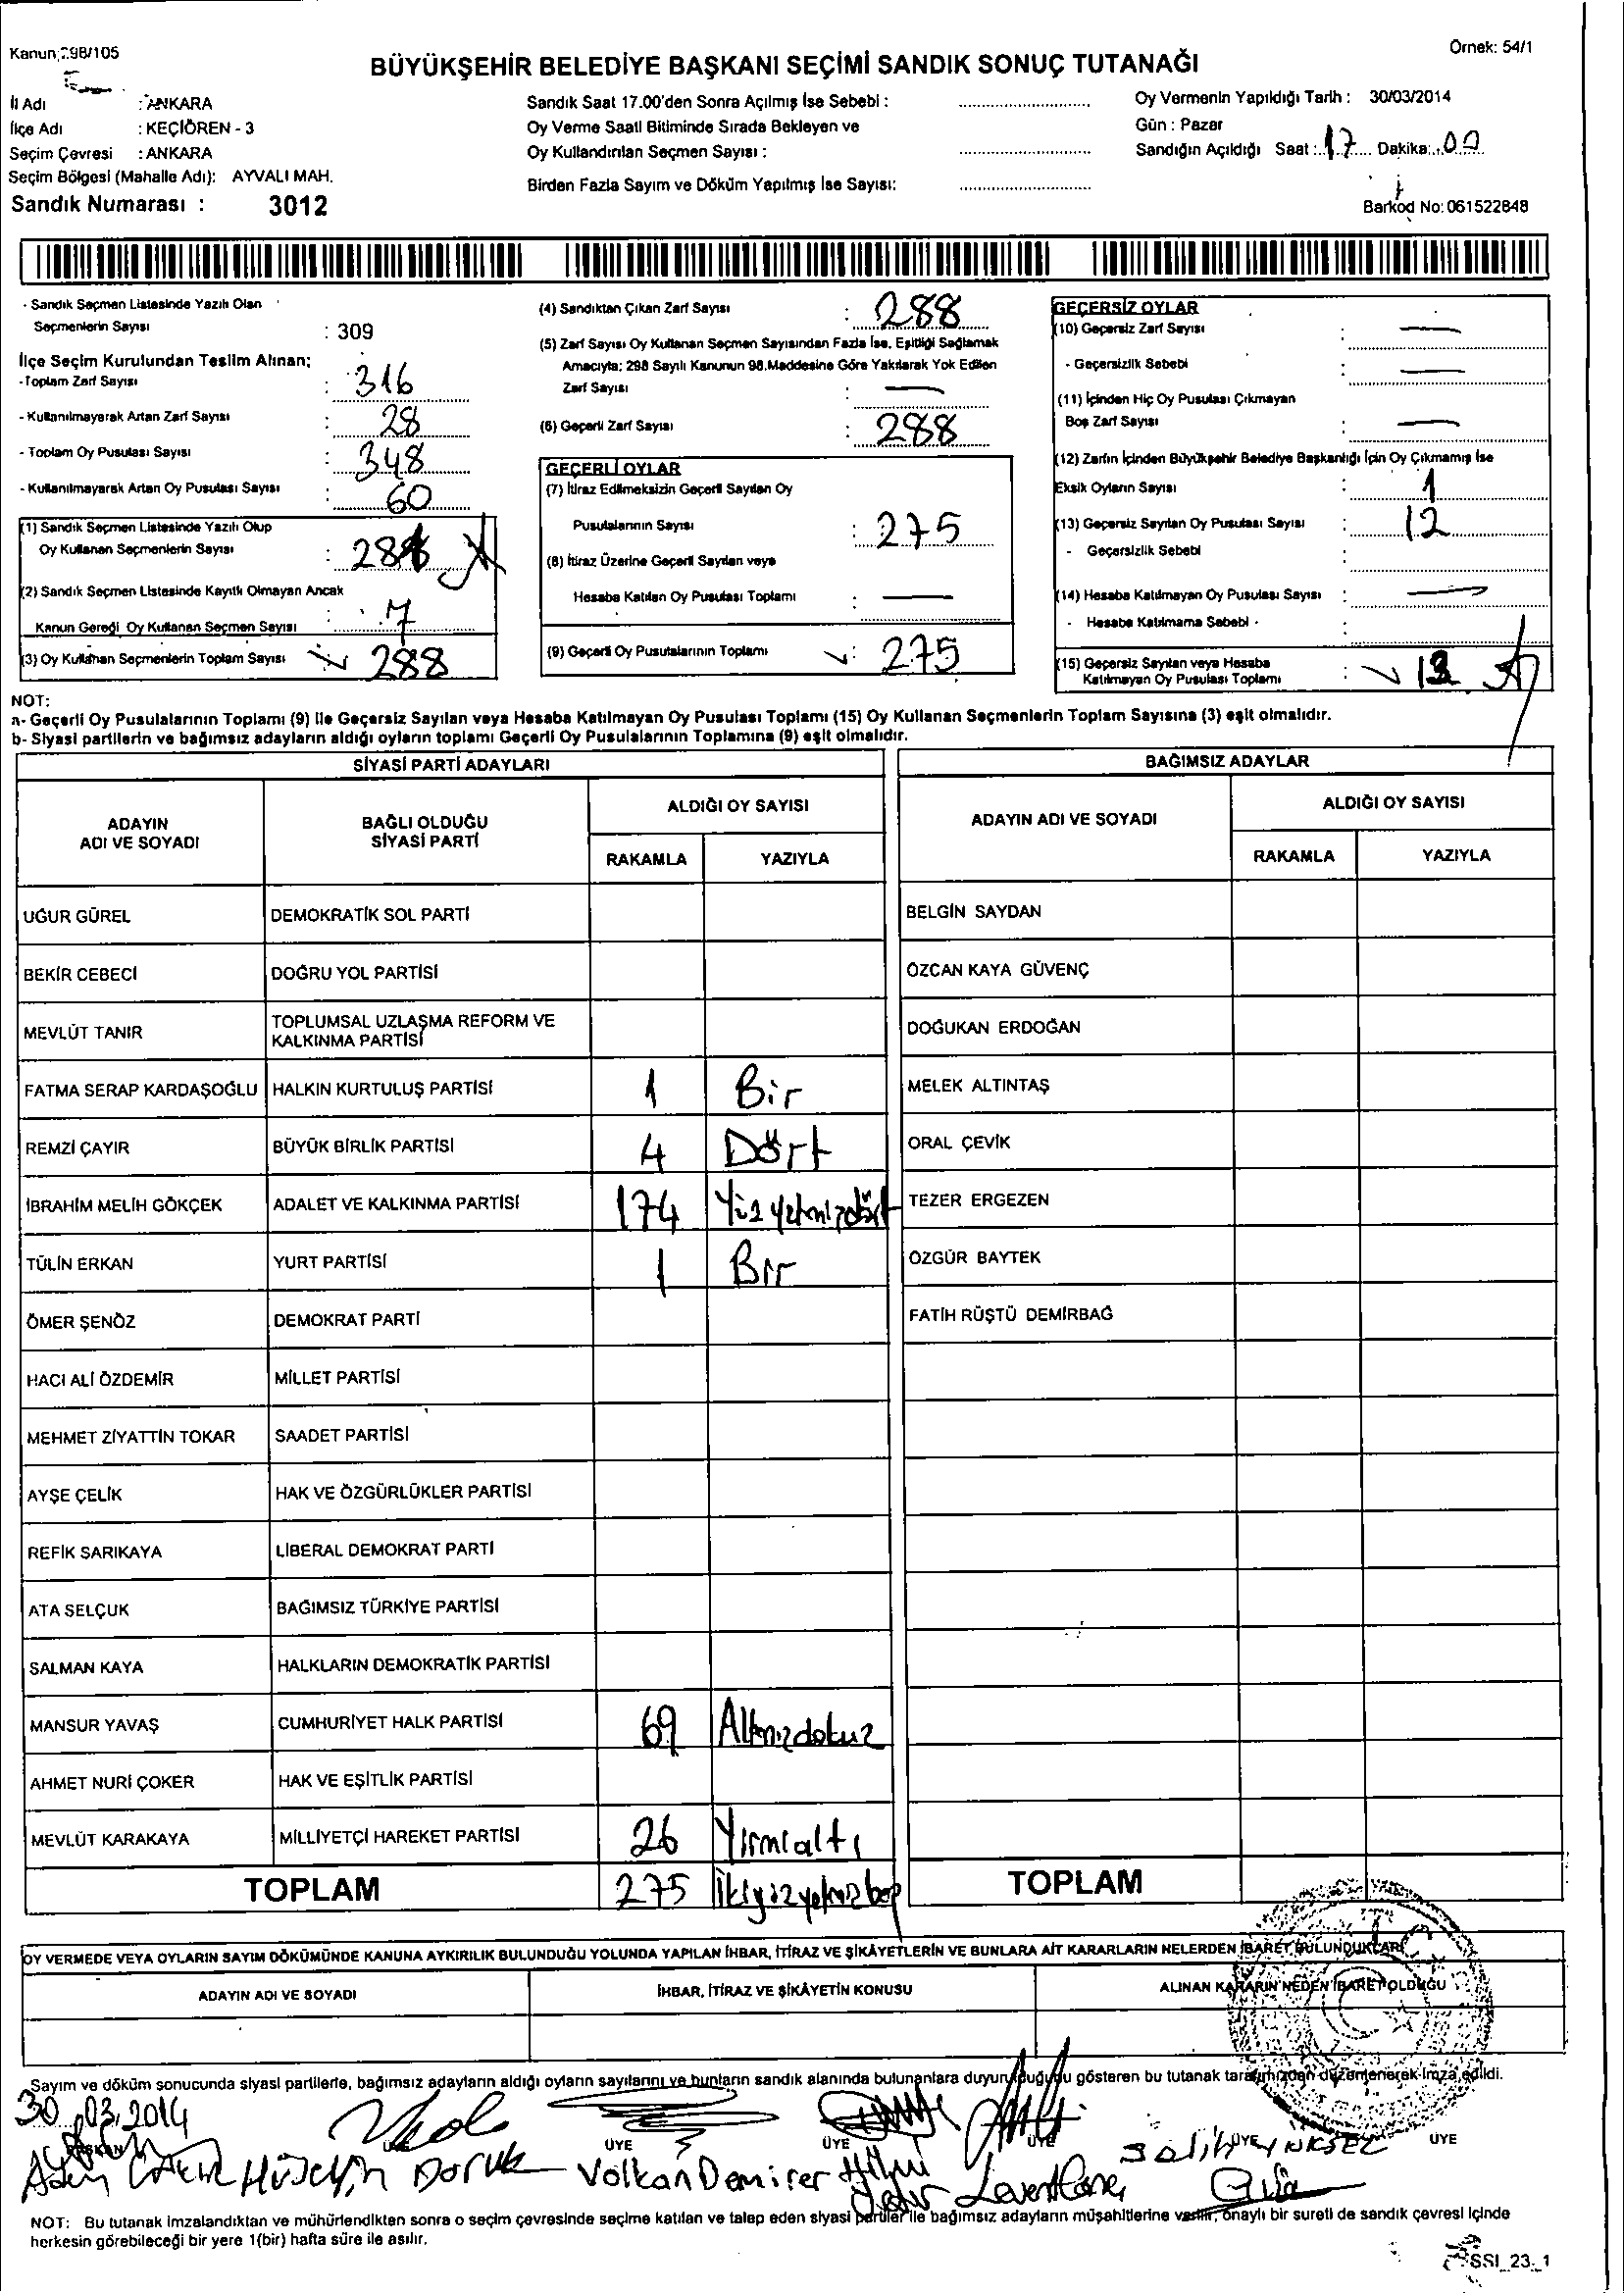 Kanun:298/105
Örnek: 54/1
BÜYÜKŞEHİR BELEDİYE BAŞKANI SEÇİMİ SANDIK SONUÇ TUTANAĞI
İl Adı : ANKARA
İlçe Adı : KEÇİÖREN - 3
Seçim Çevresi : ANKARA
Seçim Bölgesi (Mahalle Adı): AYVALI MAH.
Sandık Numarası : 3012
Sandık Saat 17.00'den Sonra Açılmış İse Sebebi :
Oy Verme Saati Bitiminde Sırada Bekleyen ve
Oy Kullandırılan Seçmen Sayısı :
Birden Fazla Sayım ve Döküm Yapılmış İse Sayısı:
Oy Vermenin Yapıldığı Tarih : 30/03/2014
Gün : Pazar
Sandığın Açıldığı Saat : 17 Dakika: 00
Barkod No: 061522848
- Sandık Seçmen Listesinde Yazılı Olan
Seçmenlerin Sayısı : 309
İlçe Seçim Kurulundan Teslim Alınan;
-Toplam Zarf Sayısı : 316
- Kullanılmayarak Artan Zarf Sayısı : 28
- Toplam Oy Pusulası Sayısı : 348
- Kullanılmayarak Artan Oy Pusulası Sayısı : 60
(1) Sandık Seçmen Listesinde Yazılı Olup
Oy Kullanan Seçmenlerin Sayısı :
(2) Sandık Seçmen Listesinde Kayıtlı Olmayan Ancak
Kanun Gereği Oy Kullanan Seçmen Sayısı : 7
(3) Oy Kullanan Seçmenlerin Toplam Sayısı 288
(4) Sandıktan Çıkan Zarf Sayısı : 288
(5) Zarf Sayısı Oy Kullanan Seçmen Sayısından Fazla İse, Eşitliği Sağlamak
Amacıyla; 298 Sayılı Kanunun 98.Maddesine Göre Yakılarak Yok Edilen
Zarf Sayısı : —
(6) Geçerli Zarf Sayısı : 288
GEÇERLİ OYLAR
(7) İtiraz Edilmeksizin Geçerli Sayılan Oy
Pusulalarının Sayısı : 275
(8) İtiraz Üzerine Geçerli Sayılan veya
Hesaba Katılan Oy Pusulası Toplamı : —
(9) Geçerli Oy Pusulalarının Toplamı : 275
GEÇERSİZ OYLAR
(10) Geçersiz Zarf Sayısı : —
- Geçersizlik Sebebi : —
(11) İçinden Hiç Oy Pusulası Çıkmayan
Boş Zarf Sayısı : —
(12) Zarfın İçinden Büyükşehir Belediye Başkanlığı İçin Oy Çıkmamış İse
Eksik Oyların Sayısı : 1
(13) Geçersiz Sayılan Oy Pusulası Sayısı : 12
- Geçersizlik Sebebi :
(14) Hesaba Katılmayan Oy Pusulası Sayısı : —
- Hesaba Katılmama Sebebi - :
(15) Geçersiz Sayılan veya Hesaba
Katılmayan Oy Pusulası Toplamı : 13
NOT:
a- Geçerli Oy Pusulalarının Toplamı (9) ile Geçersiz Sayılan veya Hesaba Katılmayan Oy Pusulası Toplamı (15) Oy Kullanan Seçmenlerin Toplam Sayısına (3) eşit olmalıdır.
b- Siyasi partilerin ve bağımsız adayların aldığı oyların toplamı Geçerli Oy Pusulalarının Toplamına (9) eşit olmalıdır.
SİYASİ PARTİ ADAYLARI
ADAYIN ADI VE SOYADI
BAĞLI OLDUĞU SİYASİ PARTİ
ALDIĞI OY SAYISI
RAKAMLA YAZIYLA
UĞUR GÜREL DEMOKRATİK SOL PARTİ
BEKİR CEBECİ DOĞRU YOL PARTİSİ
MEVLÜT TANIR TOPLUMSAL UZLAŞMA REFORM VE
KALKINMA PARTİSİ
FATMA SERAP KARDAŞOĞLU HALKIN KURTULUŞ PARTİSİ 1 Bir
REMZİ ÇAYIR BÜYÜK BİRLİK PARTİSİ 4 Dört
İBRAHİM MELİH GÖKÇEK ADALET VE KALKINMA PARTİSİ 174 Yüz yetmişdört
TÜLİN ERKAN YURT PARTİSİ 1 Bir
ÖMER ŞENÖZ DEMOKRAT PARTİ
HACI ALİ ÖZDEMİR MİLLET PARTİSİ
MEHMET ZİYATTİN TOKAR SAADET PARTİSİ
AYŞE ÇELİK HAK VE ÖZGÜRLÜKLER PARTİSİ
REFİK SARIKAYA LİBERAL DEMOKRAT PARTİ
ATA SELÇUK BAĞIMSIZ TÜRKİYE PARTİSİ
SALMAN KAYA HALKLARIN DEMOKRATİK PARTİSİ
MANSUR YAVAŞ CUMHURİYET HALK PARTİSİ 69 Altmışdokuz
AHMET NURİ ÇOKER HAK VE EŞİTLİK PARTİSİ
MEVLÜT KARAKAYA MİLLİYETÇİ HAREKET PARTİSİ 26 Yirmialtı
TOPLAM 275 İkiyüzyetmişbeş
BAĞIMSIZ ADAYLAR
ADAYIN ADI VE SOYADI
ALDIĞI OY SAYISI
RAKAMLA YAZIYLA
BELGİN SAYDAN
ÖZCAN KAYA GÜVENÇ
DOĞUKAN ERDOĞAN
MELEK ALTINTAŞ
ORAL ÇEVİK
TEZER ERGEZEN
ÖZGÜR BAYTEK
FATİH RÜŞTÜ DEMİRBAĞ
TOPLAM
OY VERMEDE VEYA OYLARIN SAYIM DÖKÜMÜNDE KANUNA AYKIRILIK BULUNDUĞU YOLUNDA YAPILAN İHBAR, İTİRAZ VE ŞİKÂYETLERİN VE BUNLARA AİT KARARLARIN NELERDEN İBARET BULUNDUKLARI
ADAYIN ADI VE SOYADI
İHBAR, İTİRAZ VE ŞİKÂYETİN KONUSU
ALINAN KARARIN NEDEN İBARET OLDUĞU
Sayım ve döküm sonucunda siyasi partilerle, bağımsız adayların aldığı oyların sayılarını ve bunların sandık alanında bulunanlara duyurulduğunu gösteren bu tutanak tarafımızdan düzenlenerek imza edildi.
30.03.2014
BAŞKAN ÜYE ÜYE ÜYE ÜYE ÜYE ÜYE
Hüseyin Doruk Volkan Demirer Salih YÜKSEL
NOT: Bu tutanak imzalandıktan ve mühürlendikten sonra o seçim çevresinde seçime katılan ve talep eden siyasi partiler ile bağımsız adayların müşahitlerine verilir, onaylı bir sureti de sandık çevresi içinde
herkesin görebileceği bir yere 1(bir) hafta süre ile asılır.
SSI_23_1